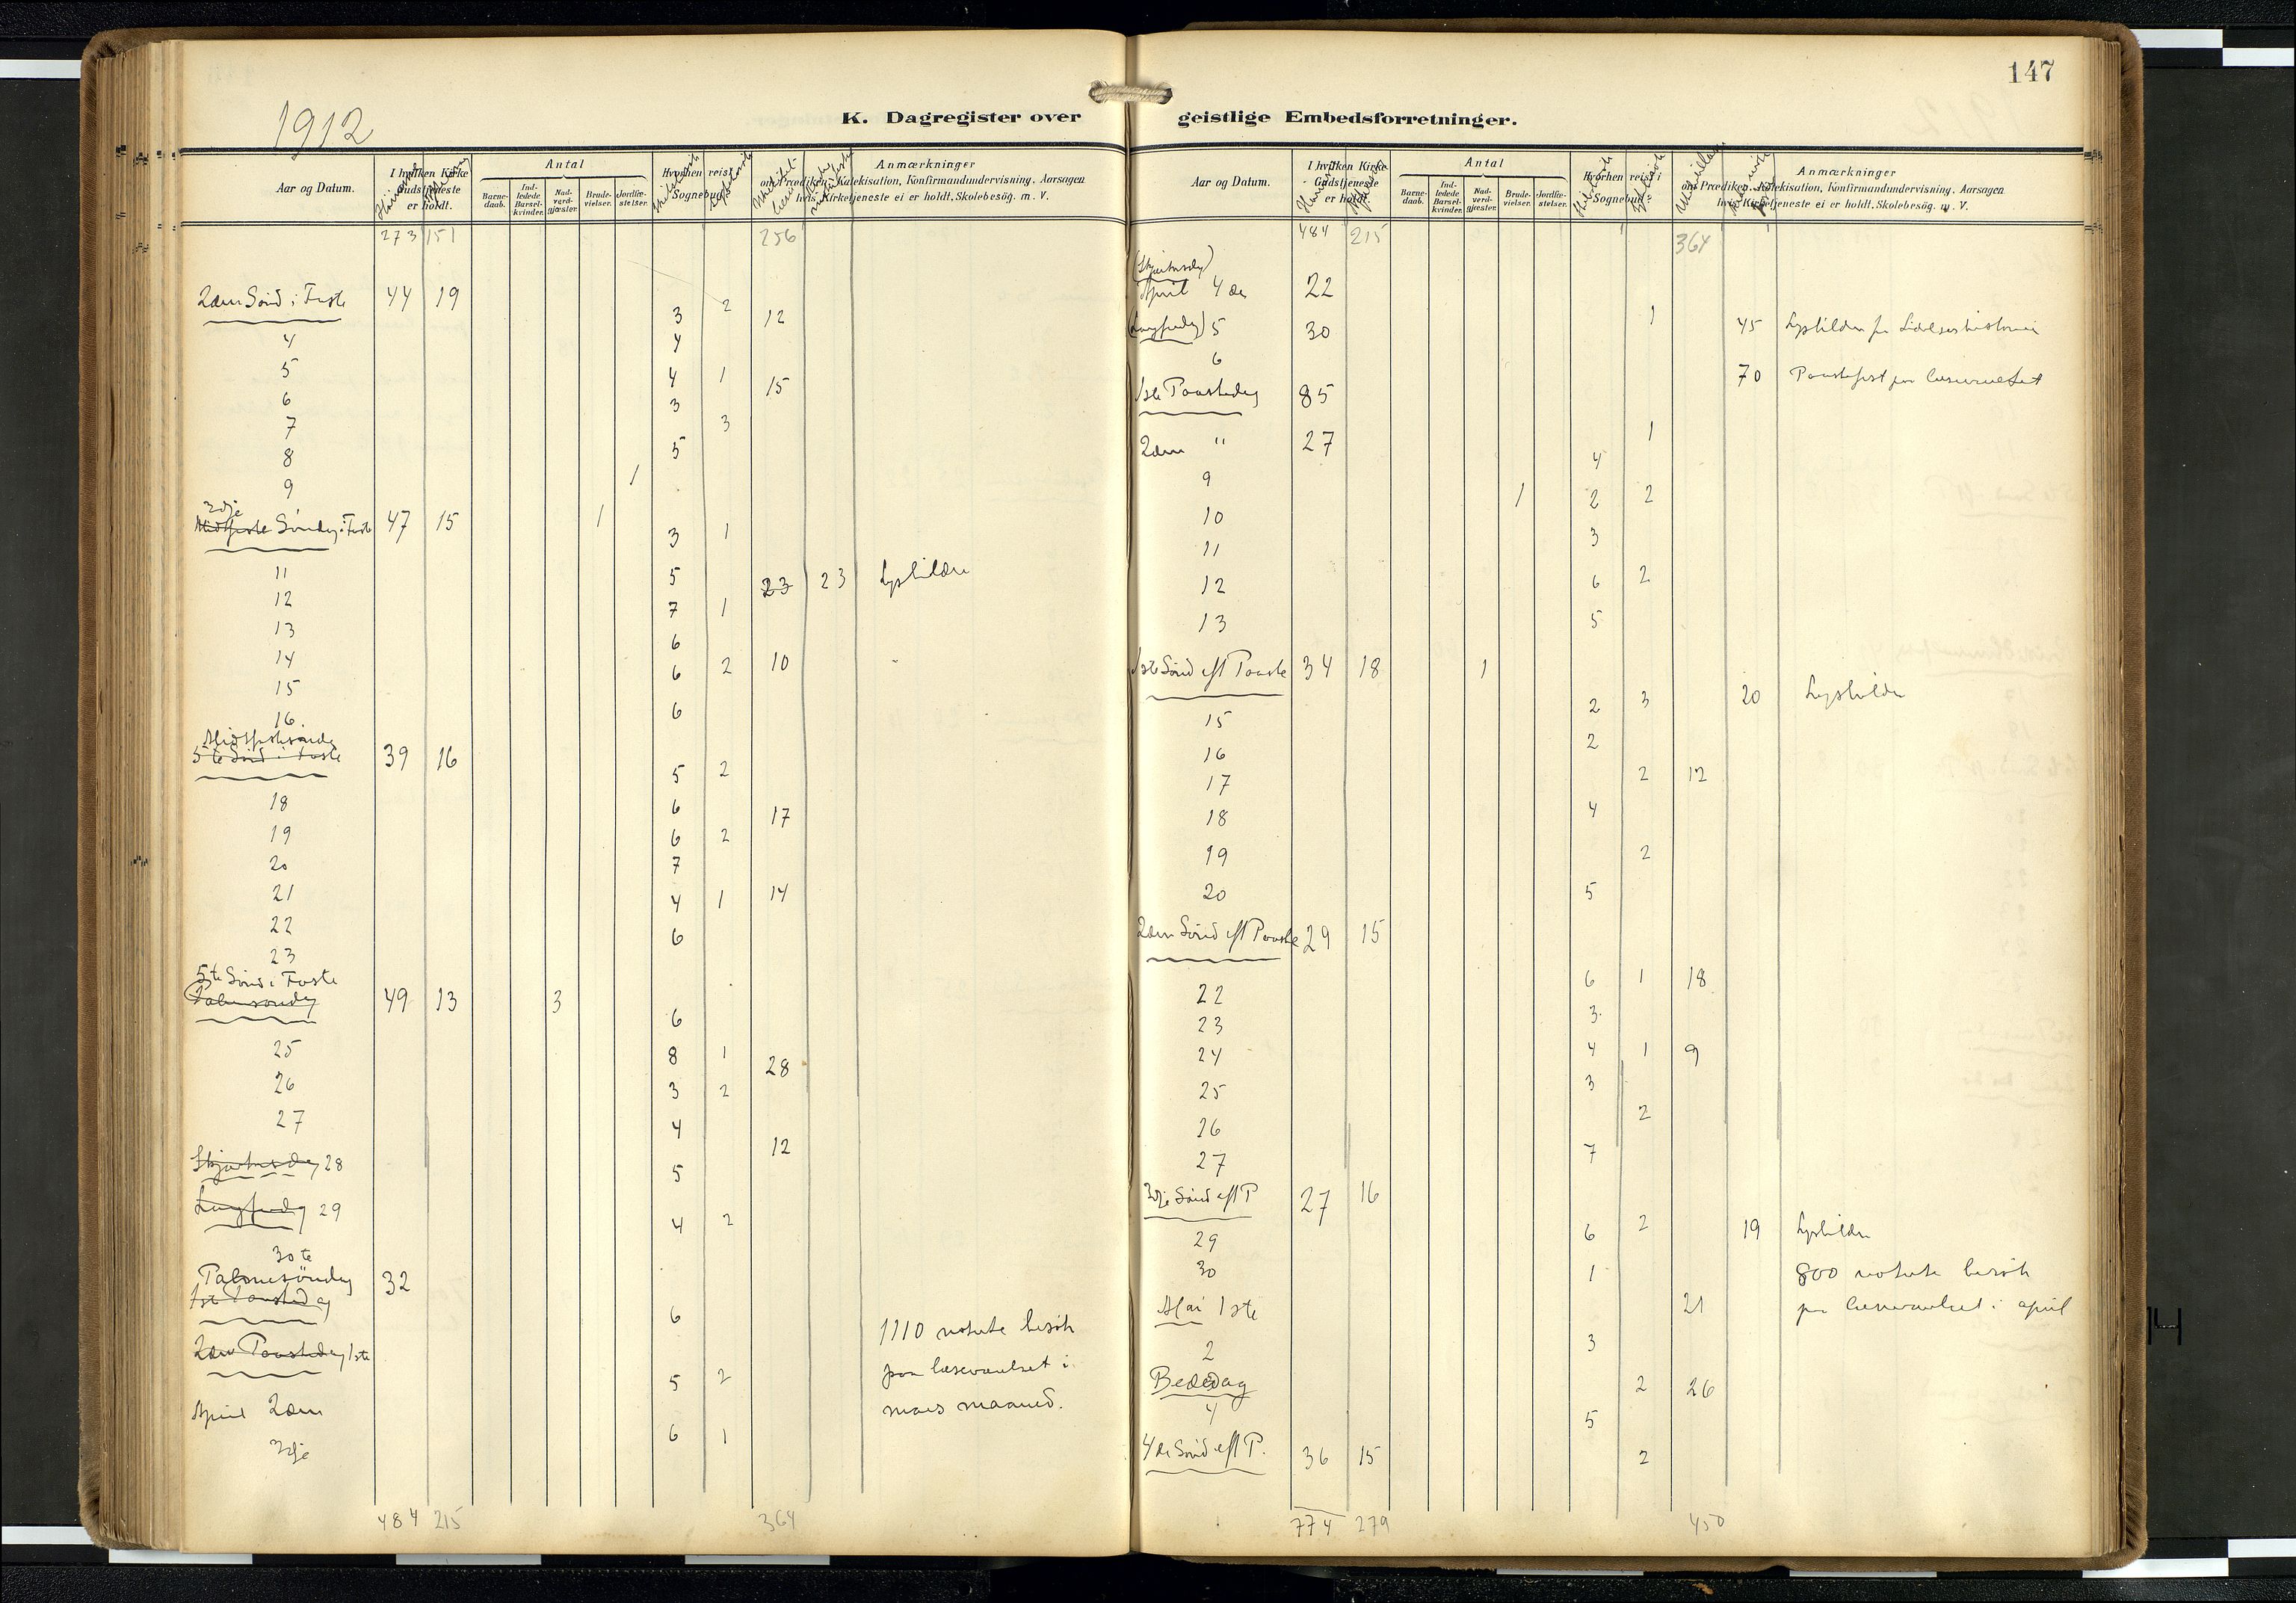 147
1912
K. Dagregister over geistlige Embedsforretninger.
Aar og Datum. I hvilken Kirke Gudstjeneste er holdt. Antal Barnedaab. Indledede Barselkvinder. Nadverdgjæster. Brudevielser. Jordfæstelser. Hvorhen reist i Sognebud. Anmærkninger om Prædiken, Katekisation, Konfirmandundervisning, Aarsagen hvis Kirketjeneste ei er holdt, Skolebesög. m. V.
273 151 256
2den Sönd i Faste 44 19
3 2 12
4 4
5 4 1 15
6 3
7 3
8 5
9 1
3dje
Midtfaste Söndag i Faste 47 15 1
3 1
11 5 23 23 Lysbilder
12 7 1
13 6
14 6 2 10
15 6
16.
Midtfastesöndag
5te Sönd i Faste 39 16
5 2
18 6 17
19 6 2
20 7
21 4 1 14
22 6
23
5te Sönd i Faste
Palmesöndag 49 13 3
6
25 8 1 28
26 3 2
27 4 12
Skjærtorsdag 28 5
Langfredag 29 4 2
30te
Palmesöndag 32
1ste Paaskedag
6 1110 noterte besök
2den Paaskedag 1ste
5 2 paa læseværelset i
April 2den mars maaned.
3dje 6 1
484 215 364
Aar og Datum. I hvilken Kirke Gudstjeneste er holdt. Antal Barnedaab. Indledede Barselkvinder. Nadverdgjæster. Brudevielser. Jordfæstelser. Hvorhen reist i Sognebud. Anmærkninger om Prædiken, Katekisation, Konfirmandundervisning, Aarsagen hvis Kirketjeneste ei er holdt, Skolebesög. m. V.
484 215 364
(Skjærtorsdag)
April 4de 22
(Langfredag) 5 30 1 45 Lysbilder fra Lidelseshistorien
6
70 Paaskefest paa læseværelset
1ste Paaskedag 85
2den " 27 1
4
9 1 2 2
10 3
11
12 6 2
13 5
1ste Sönd eft Paaske 34 18 1
2 3 20 Lysbilder
15 2
16
17 2 12
18 4
19 2
20 5
2den Sönd eft Paaske 29 15
6 1 18
22 3
23
24 4 1 9
25 3
26 2
27 7
3dje Sönd eft P 27 16
6 2 19 Lysbilder
29
30 1 800 noterte besök
Mai 1ste 21 paa læseværelset i april
2 3
Bededag 2 26
4 5
4de Sönd eft P. 36 15 2
774 279 450